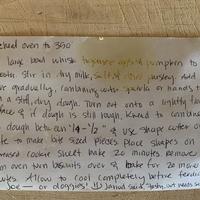 heat oven to 350°
large bowl whisk together eggs & pumpkin to
Stir in dry milk, salt & parsley. Add
gradually, combining with spatula or hands t
a stiff, dry dough. Turn out onto a lightly
& if dough is still rough, knead to combine
dough between 1/4-1/2" & use shape cutter o
to make bite sized pieces. Place shapes on
greased cookie sheet bake 20 minutes. Remove
oven turn biscuits over & bake for 20 more
Allow to cool completely before feeding
Joe — or doggies!